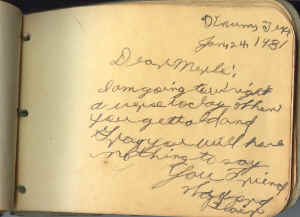 Jan, 24, 1931
Dear Merle:
I am going to wright
a verse today. When
you get old and
Gray you will have
nothing to say
Your Friend